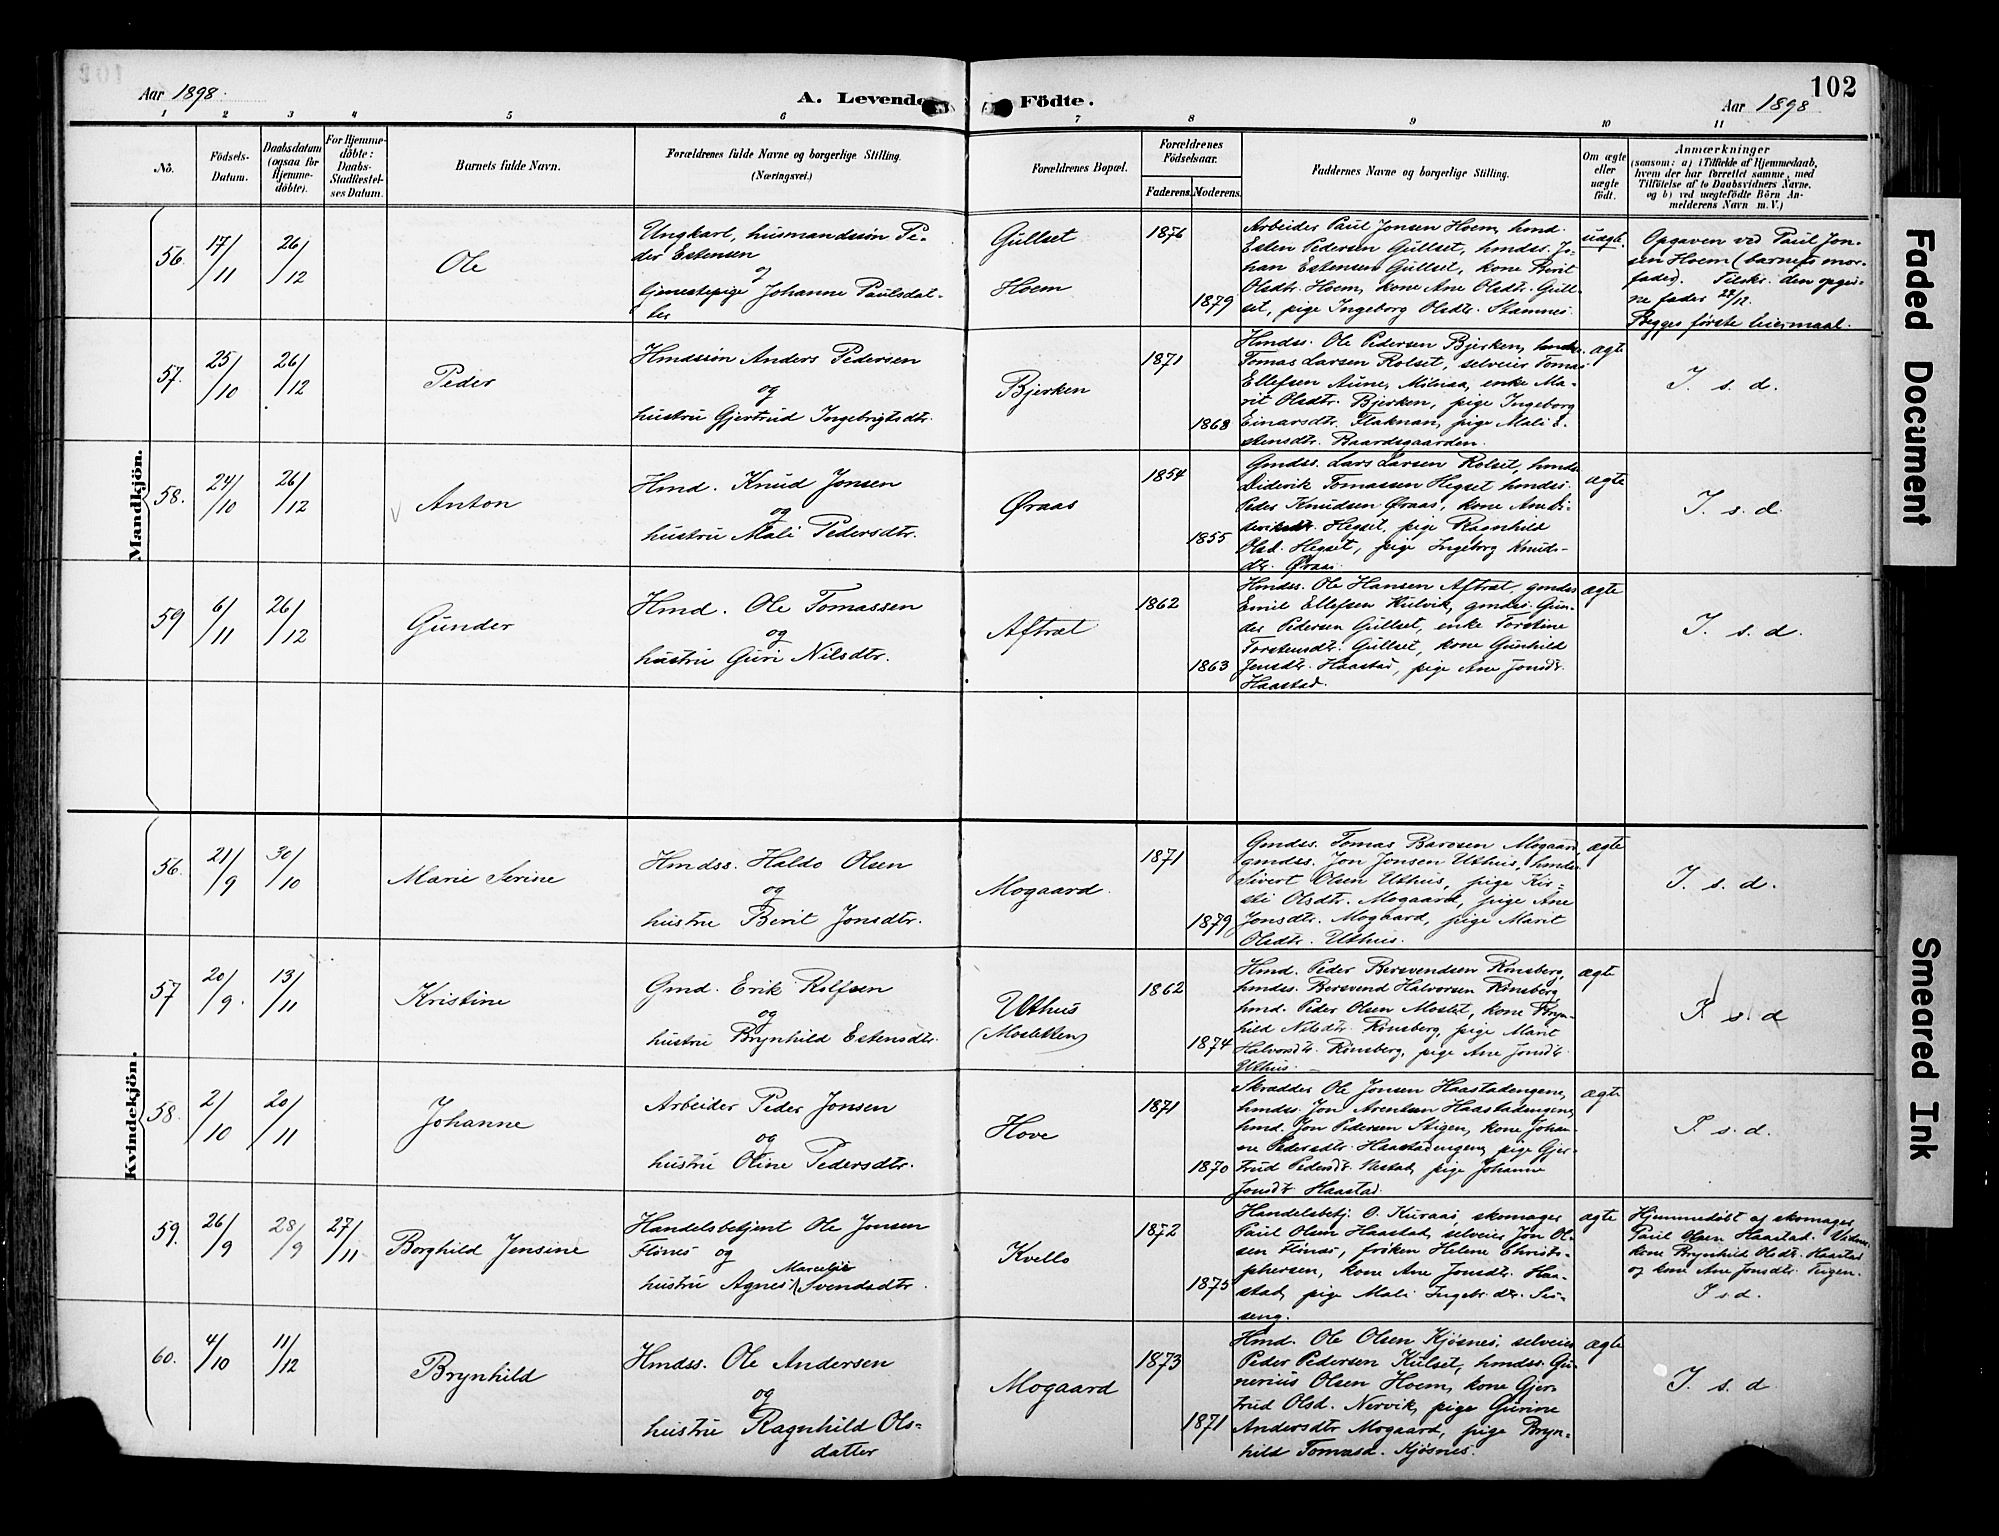 102
Aar 1898.
A. Levende Födte.
Aar 1898
1 2 3 4 5 6 7 8 9 10 11
No.
Födsels-
Datum.
Daabsdatum
(ogsaa for
Hjemme-
döbte).
For Hjemme-
döbte:
Daabs-
Stadfæstel-
ses Datum.
Barnets fulde Navn.
Forældrenes fulde Navne og borgerlige Stilling.
(Næringsvei.)
Forældrenes Bopæl.
Forældrenes
Födselsaar.
Faderens. Moderens.
Faddernes Navne og borgerlige Stilling.
Om ægte
eller
uægte
født.
Anmærkninger
(saasom: a) i Tilfælde af Hjemmedaab,
hvem der har forrettet samme, med
Tilföielse af to Daabsvidners Navne,
og b) ved uægtefödte Börn An-
melderens Navn m. V.)
Mandkjön.
56.
17/11
26/12
Ole
Ungkarl, husmandssön Pe-
der Estensen
og
tjenestepige Johanne Paulsdat-
ter
Gullset
Hoem
1876
1879
Arbeider Paul Jonsen Hoem, hmd.
Esten Pedersen Gullset, hmdss. Jo-
han Estensen Gullset, kone Berit
Olsdtr. Hoem, kone Ane Olsdtr. Gull-
set, pige Ingeborg Olsdtr. Stamnes.
uægte.
Opgaven ved Paul Jon-
sen Hoem (barnets mor-
fader). Tilskr. den opgiv-
ne fader 27/12.
Begges første leiermaal.
57.
25/10
26/12
Peder
Hmdssön Anders Pedersen
og
hustru Gjertrud Ingebrigtsdtr.
Bjerken
1871
1868
Hmdss. Ole Pedersen Bjerken, hmdss.
Tomas Larsen Rolset, selveier Tomas
Ellefsen Aune, enke Ma-
rit Olsdtr. Bjerken, pige Ingeborg
Einarsdtr. Flaknan, pige Mali E-
stensdtr. Baardsgaarden.
ægte
I. s. d.
58.
24/10
26/12
Anton
Hmd. Knud Jonsen
og
hustru Mali Pedersdtr.
Øraas
1854
1855
Gmdss. Lars Larsen Rolset, hmdss.
Didrik Tomassen Hegset hmdss.
Peder Knudsen Øraas, kone Ane Di-
deriksdtr. Hegset, pige Ragnhild
Olsd. Hegset, pige Ingeborg Knuds-
dtr. Øraas.
ægte
I. s. d.
59
6/11
26/12
Gunder
Hmd. Ole Tomassen
og
hustru Guri Nilsdtr.
Aftret
1862
1863
Hmdss. Ole Hansen Aftret, gmdss.
Emil Ellefsen Kulvik, gmdss. Gun-
der Pedersen Gullset, enke Torstine
Torstensdtr. Gullset, kone Gunhild
Jensdtr. Haastad, pige Ane Jonsdtr.
Haastad.
ægte
I. s. d.
Kvindekjön.
56.
21/9
30/10
Marie Serine
Hmdss. Haldo Olsen
og
hustru Berit Jonsdtr.
Mogaard.
1871
1879
Gmdss. Tomas Barosen Mogaard,
gmdss. Jon Jonsen Uthus, hmdss.
Sivert Olsen Uthus, pige Kir-
sti Olsdtr. Mogaard, pige Ane
Jonsdtr. Mogaard, pige Marit
Olsdtr. Uthus.
ægte
I. s. d.
57
20/9.
13/11
Kristine
Gmd. Erik Rolfsen
og
hustru Brynhild Estensdtr.
Uthus
(Mosletten)
1862
1874
Hmd. Peder Bersvendsen Rønsberg,
hmdss. Bersvend Halvorsen Rønsberg
hmd. Peder Olsen Moslet, kone Bryn-
hild Nilsdtr. Rønsberg, pige Marit
Halvorsdtr. Rønsberg, pige Ane Jonsdtr.
Uthus.
ægte
I s. d
58.
2/10
20/11
Johanne
Arbeider Peder Jonsen
og
hustru Oline Pedersdtr.
Hove
1871
1870
Skrædder Ole Jonsen Haastadengene,
hmdss. Jon Arentsen Haastadengene,
hmd. Jon Pedersen Stigen, kone Johan-
ne Pedersdtr. Haastadengene, pige Gjer-
trud Pedersdtr. pige Johanne
Jonsdtr. Haastad.
ægte
I. s. d.
59.
26/9
28/9
27/11
Borghild Jensine
Handelsbetjent Ole Jonsen
Flönes og
Marcelie
hustru Agnes Svendsdtr.
Kvello
1872
1875
Handelsbetj. O. Kuraas, skomager
Paul Olsen Haastad, selveier Jon Ol-
sen Flönes, frøken Helene Christo-
phersen, kone Ane Jonsdtr. Haa-
stad, pige Mali Ingebr.dtr. Ses-
seng.
ægte
Hjemmedøbt af skomager
Paul Olsen Haastad. Vidner:
kone Brynhild Olsdtr. Haastad
og kone Ane Jonsdtr. Teigen.
I. s. d.
60.
4/10
11/12
Brynhild
Hmdss. Ole Andersen
og
hustru Ragnhild Ols-
datter
Mogaard
1873
1871
Hmd. Ole Olsen Kjøsnes, selveier
Peder Pedersen Kulset, hmdss. Gu-
nerius Olsen Hoem, kone Gjer-
trud Olsd. Nervik, pige Gurine
Andersdtr Mogaard, pige Bryn-
hild Tomasd. Kjøsnes.
ægte
I. s. d.
Faded Document
Smeared Ink